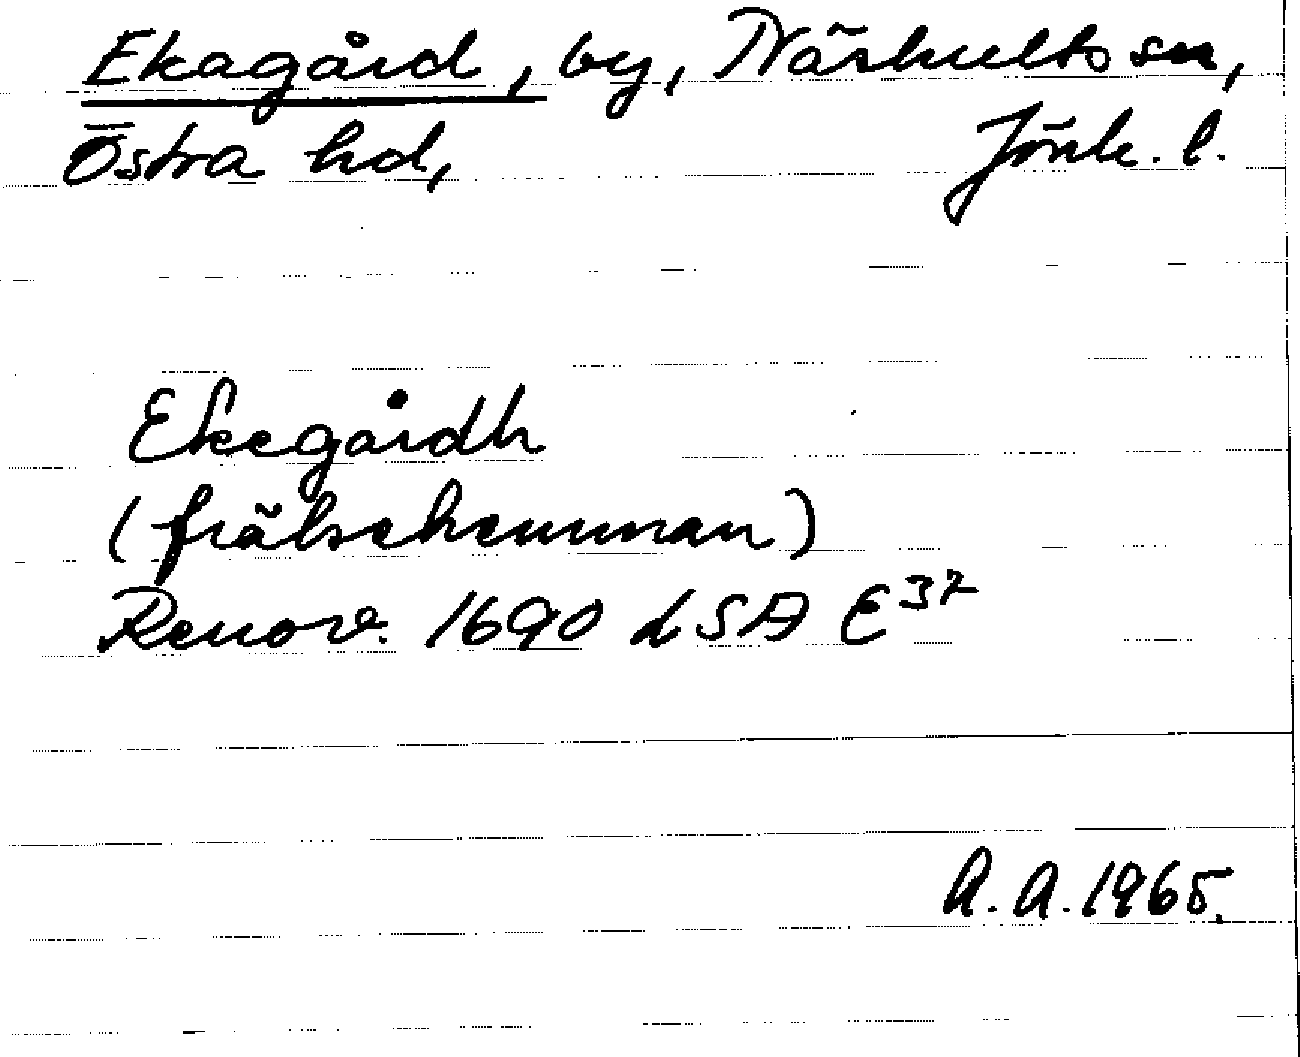 Ekagård, by, Närhults sn,
Östra hd, Jönk. l.
Ekegårdh
(frälsehemman)
Renov. 1690 LSA E³⁷
A.A. 1965.